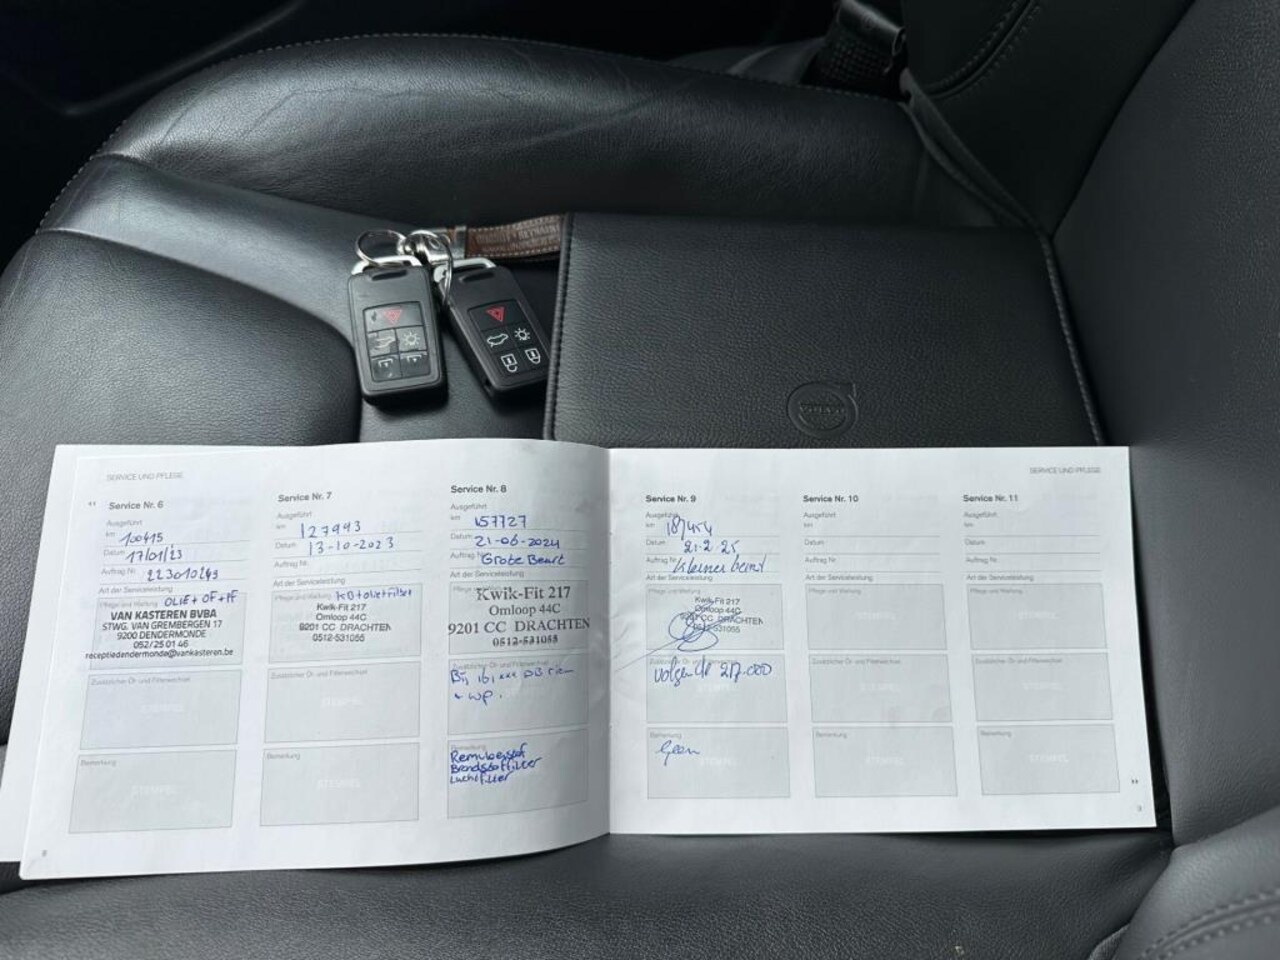 VOLVO
SERVICE UND PFLEGE
Service Nr. 6
Ausgeführt
km 100415
Datum 17/01/23
Auftrag Nr.
Art der Serviceleistung
Pflege und Wartung OLIE + OF + PF
VAN KASTEREN BVBA
STWG. VAN GREMBERGEN 17
9200 DENDERMONDE
052/25 01 46
receptiedendermonde@vankasteren.be
Zusätzlicher Öl- und Filterwechsel
STEMPEL
Bemerkung
STEMPEL
Service Nr. 7
Ausgeführt
km 127993
Datum 13-10-2023
Auftrag Nr.
Art der Serviceleistung
Pflege und Wartung KB + oliefilter
Kwik-Fit 217
Omloop 44C
9201 CC DRACHTEN
0512-531055
Zusätzlicher Öl- und Filterwechsel
STEMPEL
Bemerkung
STEMPEL
Service Nr. 8
Ausgeführt
km 157727
Datum 21-06-2024
Auftrag Nr. Grote Beurt
Art der Serviceleistung
Pflege und Wartung
Kwik-Fit 217
Omloop 44C
9201 CC DRACHTEN
0512-531055
Zusätzlicher Öl- und Filterwechsel
+ WP.
Bemerkung
Remvloeistof
Brandstoffilter
Luchtfilter
SERVICE UND PFLEGE
Service Nr. 9
Ausgeführt
km
Datum 21-2-25
Auftrag Nr. Kleine beurt
Art der Serviceleistung
Kwik-Fit 217
Omloop 44C
9201 CC DRACHTEN
0512-531055
Zusätzlicher Öl- und Filterwechsel
STEMPEL
217.000
Bemerkung
Geen
STEMPEL
Service Nr. 10
Ausgeführt
km
Datum
Auftrag Nr.
Art der Serviceleistung
Pflege und Wartung
STEMPEL
Zusätzlicher Öl- und Filterwechsel
STEMPEL
Bemerkung
STEMPEL
Service Nr. 11
Ausgeführt
km
Datum
Auftrag Nr.
Art der Serviceleistung
Pflege und Wartung
STEMPEL
Zusätzlicher Öl- und Filterwechsel
STEMPEL
Bemerkung
STEMPEL